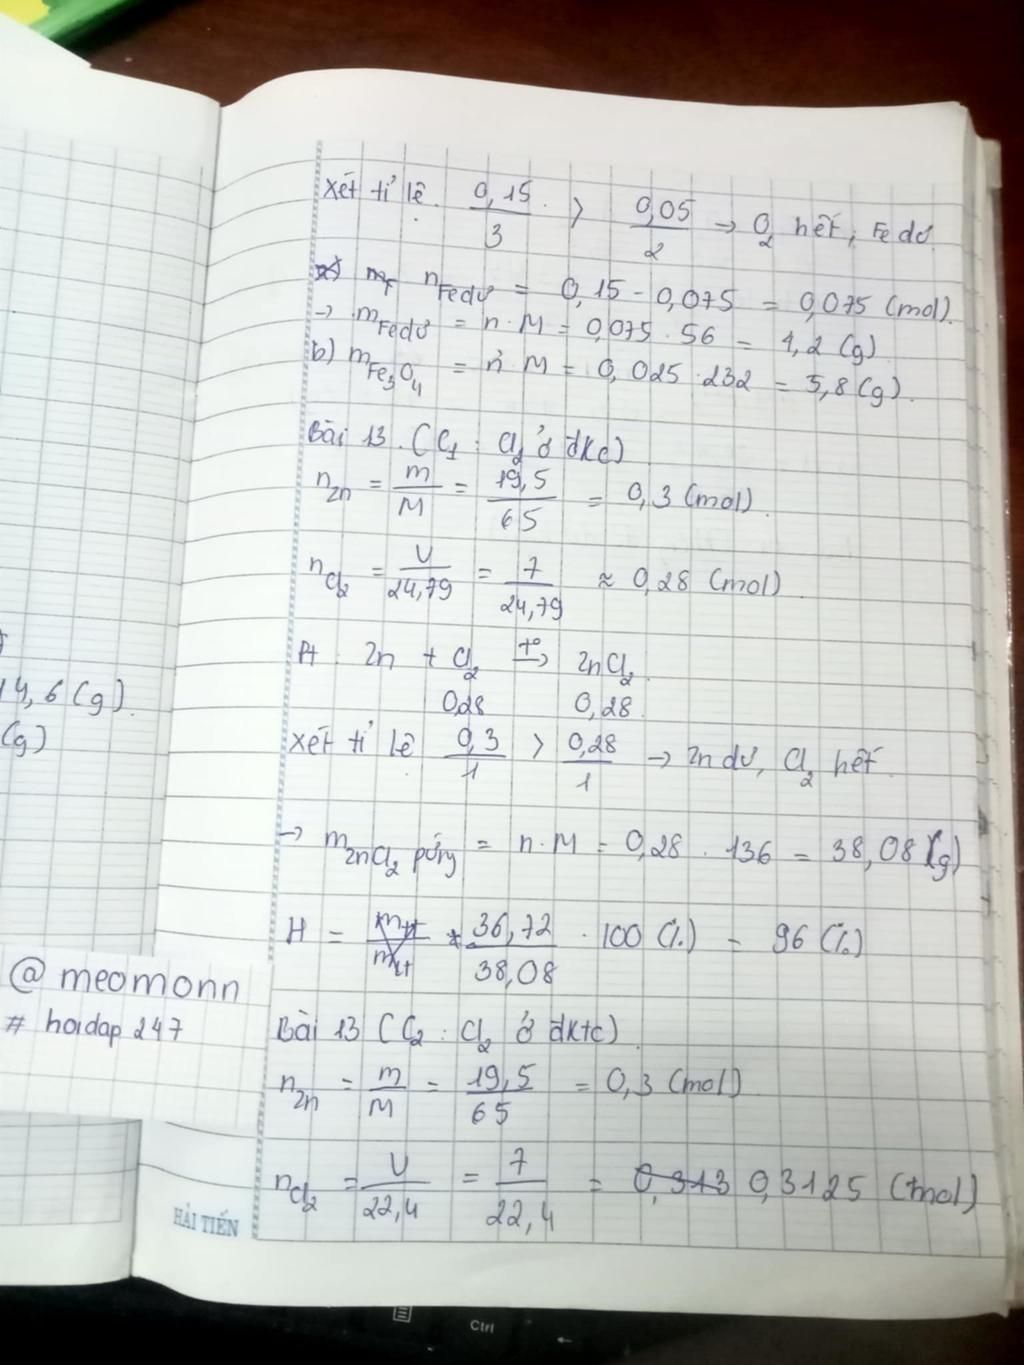 14,6 (g).
(g)
@ meomonn
# hoidap 247
Xét tỉ lệ. 0,15/3 > 0,05/2 → O2 hết, Fe dư
nFe dư = 0,15 - 0,075 = 0,075 (mol).
→ mFe dư = n.M = 0,075 . 56 = 4,2 (g)
b) mFe3O4 = n.M = 0,025 . 232 = 5,8 (g).
Bài 13. (C1 : Cl2 ở đkc)
nZn = m/M = 19,5/65 = 0,3 (mol).
nCl2 = V/24,79 = 7/24,79 ≈ 0,28 (mol)
Pt : Zn + Cl2 t°→ ZnCl2
0,28 0,28
Xét tỉ lệ 0,3/1 > 0,28/1 → Zn dư, Cl2 hết
→ mZnCl2 pứng = n.M = 0,28 . 136 = 38,08 (g)
H = 36,72/38,08 . 100 (%) = 96 (%)
Bài 13 (C2 : Cl2 ở đktc)
nZn = m/M = 19,5/65 = 0,3 (mol)
nCl2 = V/22,4 = 7/22,4 = 0,313 0,3125 (mol)
HẢI TIẾN
Ctrl